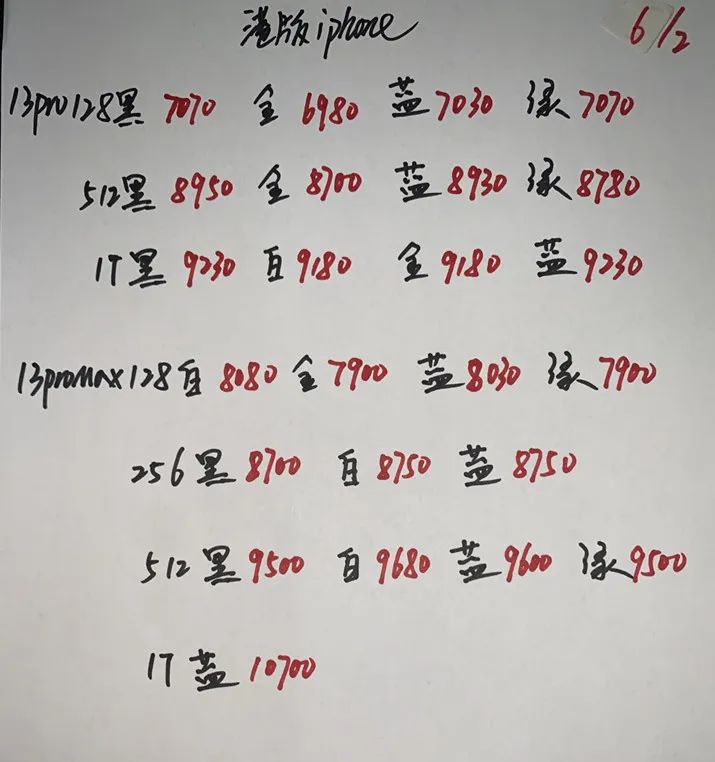 港版iphone 6/2
13pro128黑 7070 金 6980 蓝 7030 绿 7070
512黑 8950 金 8700 蓝 8930 绿 8780
1T黑 9230 白 9180 金 9180 蓝 9230
13promax128白 8080 金 7900 蓝 8030 绿 7900
256黑 8700 白 8750 蓝 8750
512黑 9500 白 9680 蓝 9600 绿 9500
1T蓝 10700